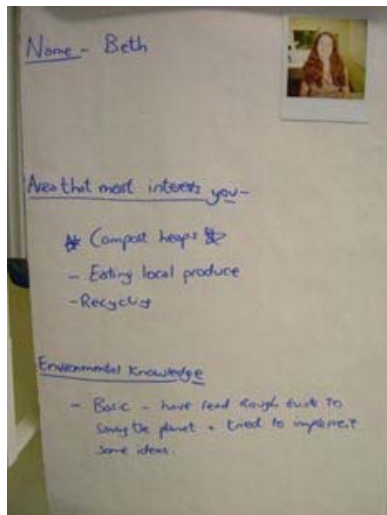 Name - Beth
Area that most interests you -
Compost heaps
- Eating local produce
- Recycling
Environmental Knowledge
- Basic - have read Rough Guide to
Saving the planet + tried to implement
some ideas.